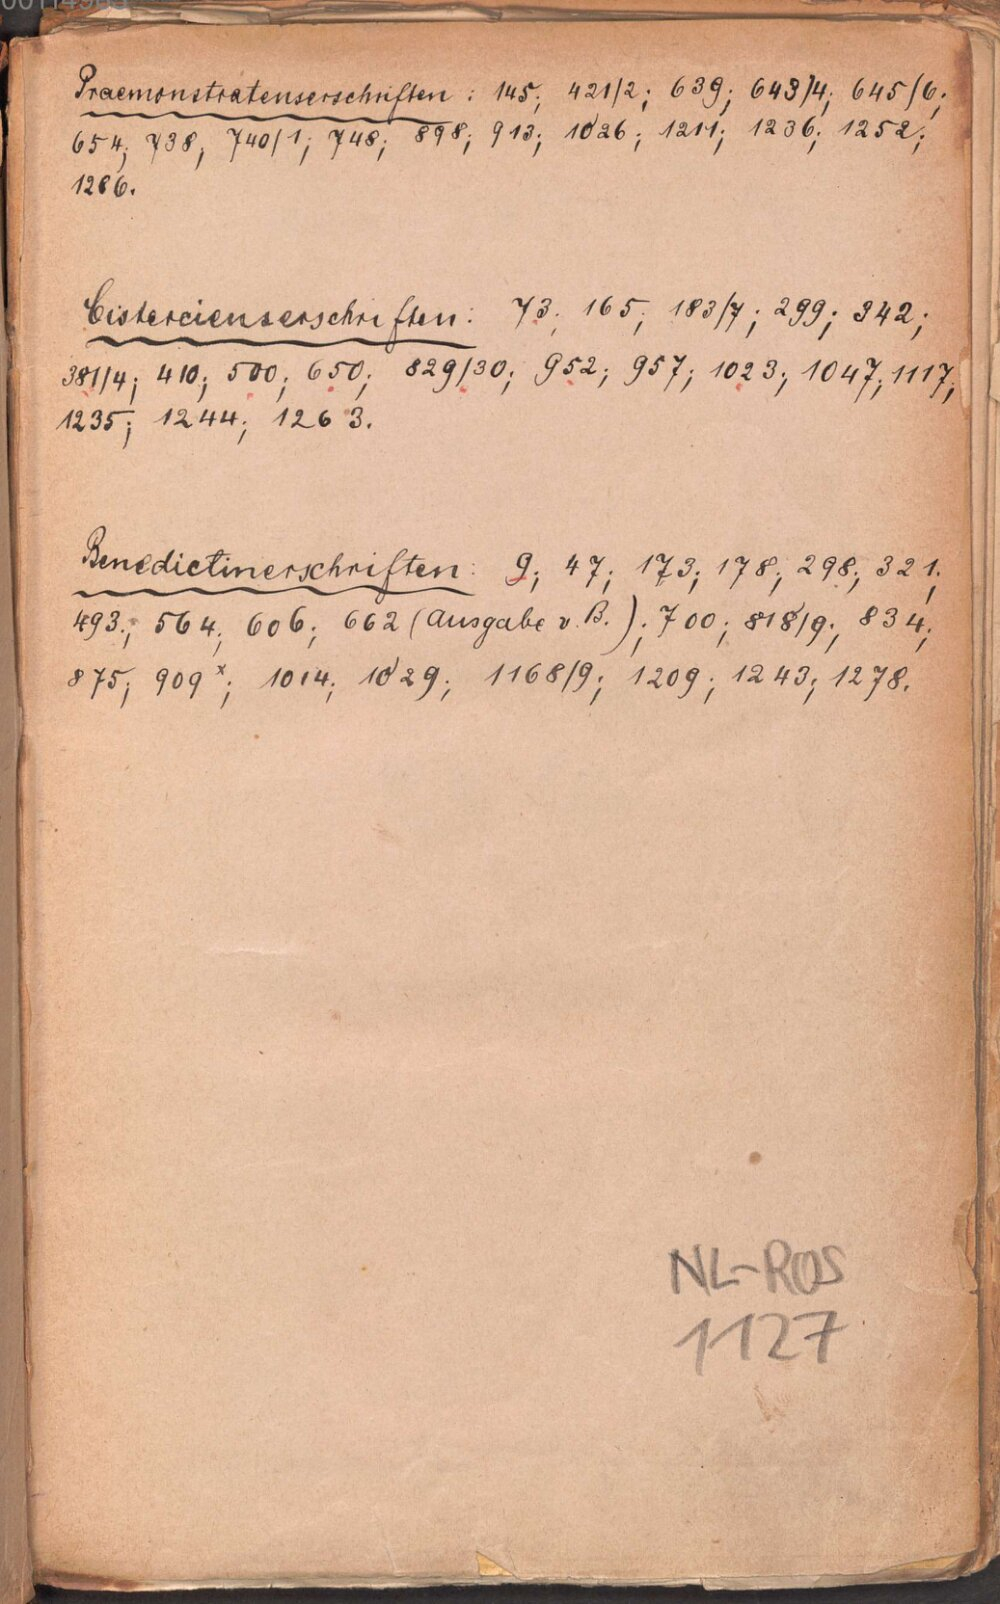 Praemonstratenserschriften: 145; 421/2; 639; 643/4; 645/6;
654; 738; 740/1; 748; 898; 913; 1026; 1211; 1236; 1252;
1286.
Cistercienserschriften: 73; 165; 183/7; 299; 342;
381/4; 410; 500; 650; 829/30; 952; 957; 1023; 1047; 1117;
1235; 1244; 1263.
Benedictinerschriften: 9; 47; 173; 178; 298; 321;
493; 564; 606; 662 (Ausgabe v. B.); 700; 818/9; 834;
875; 909 x; 1014; 1029; 1168/9; 1209; 1243; 1278.
NL-ROS
1127